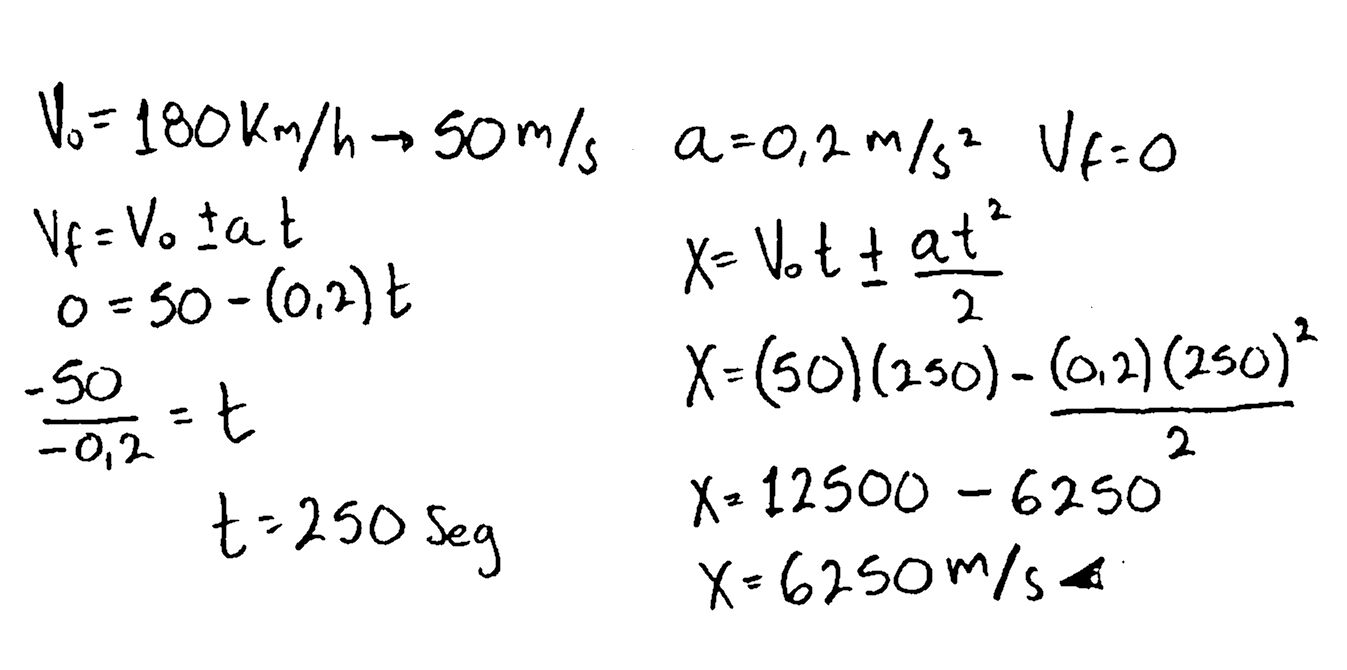 V₀ = 180 Km/h → 50 m/s a = 0,2 m/s² Vf = 0
Vf = V₀ ± a t
0 = 50 - (0,2) t
-50/-0,2 = t
t = 250 Seg
X = V₀ t ± at²/2
X = (50)(250) - (0,2)(250)²/2
X = 12500 - 6250
X = 6250 m/s